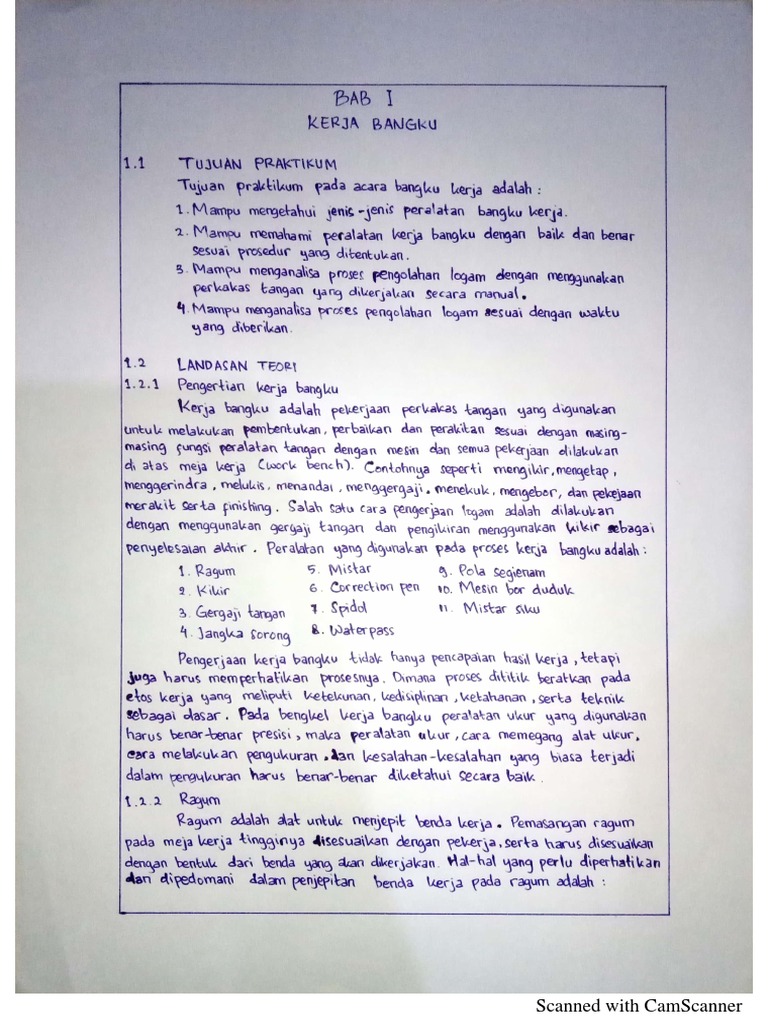 BAB I
KERJA BANGKU
1.1 TUJUAN PRAKTIKUM
Tujuan praktikum pada acara bangku kerja adalah :
1. Mampu mengetahui jenis-jenis peralatan bangku kerja.
2. Mampu memahami peralatan kerja bangku dengan baik dan benar
sesuai prosedur yang ditentukan.
3. Mampu menganalisa proses pengolahan logam dengan menggunakan
perkakas tangan yang dikerjakan secara manual.
4. Mampu menganalisa proses pengolahan logam sesuai dengan waktu
yang diberikan.
1.2 LANDASAN TEORI
1.2.1 Pengertian kerja bangku
Kerja bangku adalah pekerjaan perkakas tangan yang digunakan
untuk melakukan pembentukan, perbaikan dan perakitan sesuai dengan masing-
masing fungsi peralatan tangan dengan mesin dan semua pekerjaan dilakukan
di atas meja kerja (work bench). Contohnya seperti mengikir, mengetap,
menggerindra, melukis, menandai, menggergaji, menekuk, mengebor, dan pekejaan
merakit serta finishing. Salah satu cara pengerjaan logam adalah dilakukan
dengan menggunakan gergaji tangan dan pengikiran menggunakan kikir sebagai
penyelesaian akhir. Peralatan yang digunakan pada proses kerja bangku adalah :
1. Ragum 5. Mistar 9. Pola segienam
2. Kikir 6. Correction pen 10. Mesin bor duduk
3. Gergaji tangan 7. Spidol 11. Mistar siku
4. Jangka sorong 8. Waterpass
Pengerjaan kerja bangku tidak hanya pencapaian hasil kerja, tetapi
juga harus memperhatikan prosesnya. Dimana proses dititik beratkan pada
etos kerja yang meliputi ketekunan, kedisiplinan, ketahanan, serta teknik
sebagai dasar. Pada bengkel kerja bangku peralatan ukur yang digunakan
harus benar-benar presisi, maka peralatan ukur, cara memegang alat ukur,
cara melakukan pengukuran, dan kesalahan-kesalahan yang biasa terjadi
dalam pengukuran harus benar-benar diketahui secara baik.
1.2.2 Ragum
Ragum adalah alat untuk menjepit benda kerja. Pemasangan ragum
pada meja kerja tingginya disesuaikan dengan pekerja, serta harus disesuaikan
dengan bentuk dari benda yang akan dikerjakan. Hal-hal yang perlu diperhatikan
dan dipedomani dalam penjepitan benda kerja pada ragum adalah :
Scanned with CamScanner